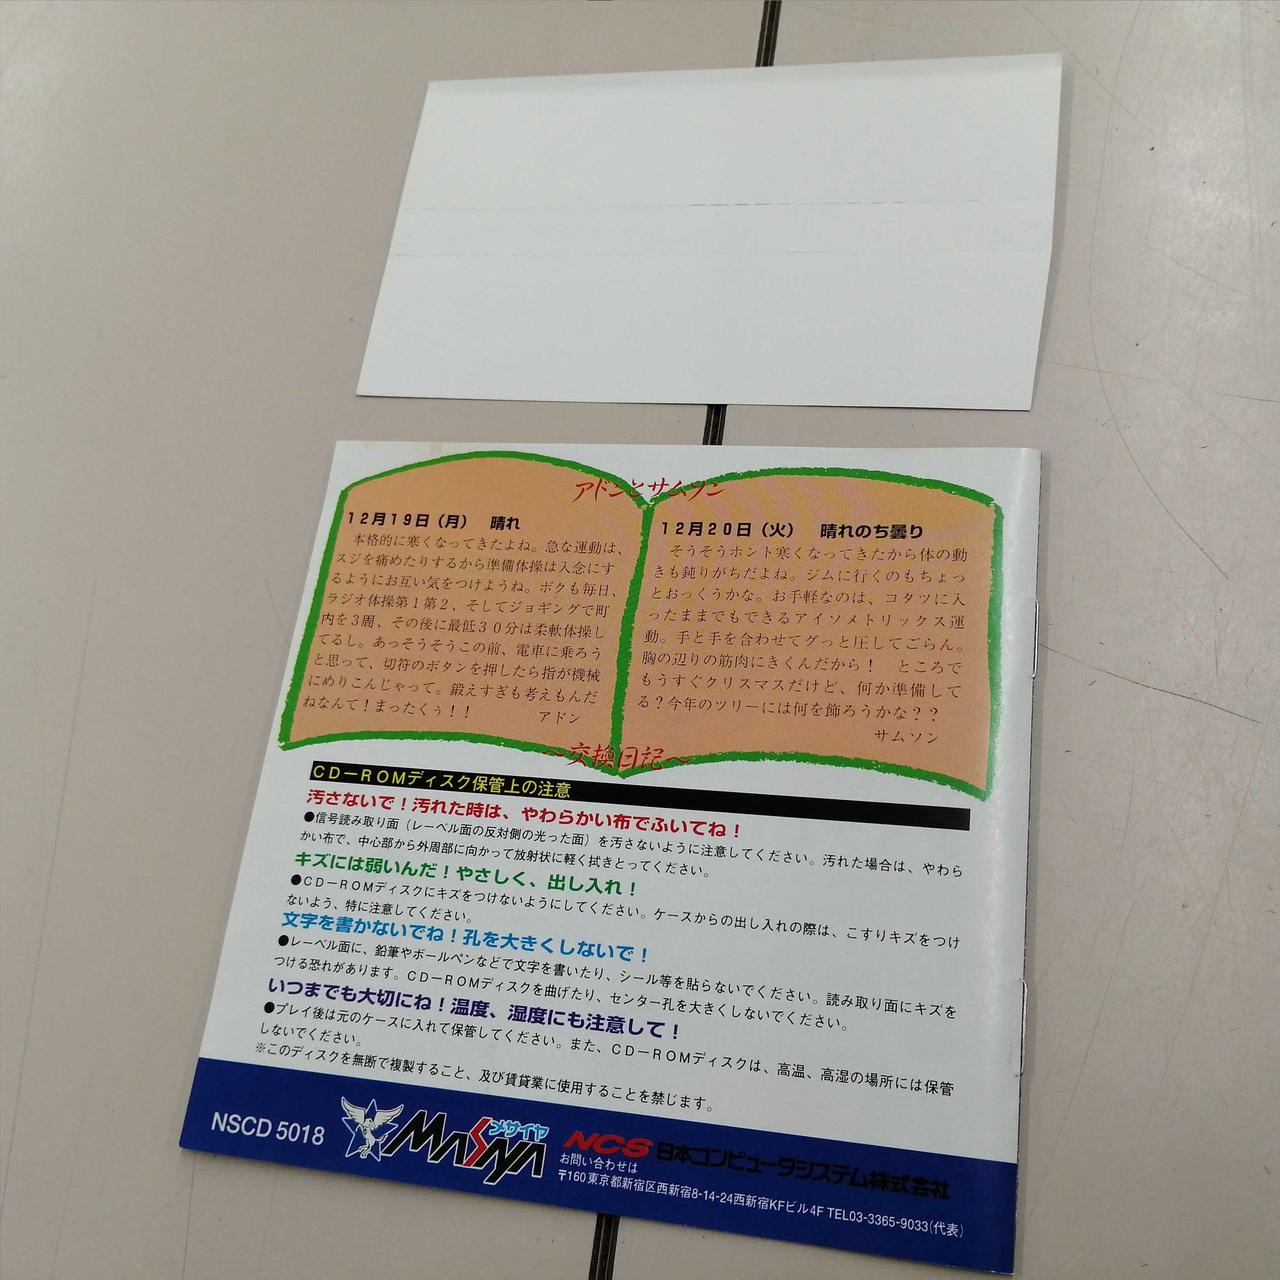 アドンとサムソン
12月19日（月）　晴れ
　本格的に寒くなってきたよね。急な運動は、
スジを痛めたりするから準備体操は入念にす
るようにお互い気をつけようね。ボクも毎日、
ラジオ体操第１第２、そしてジョギングで町
内を３周、その後に最低３０分は柔軟体操し
てるし。あっそうそうこの前、電車に乗ろう
と思って、切符のボタンを押したら指が機械
にめりこんじゃって。鍛えすぎも考えもんだ
ねなんて！まったくぅ！！
アドン
12月20日（火）　晴れのち曇り
　そうそうホント寒くなってきたから体の動
きも鈍りがちだよね。ジムに行くのもちょっ
とおっくうかな。お手軽なのは、コタツに入
ったままでもできるアイソメトリックス運
動。手と手を合わせてグっと圧してごらん。
胸の辺りの筋肉にきくんだから！　ところで
もうすぐクリスマスだけど、何か準備して
る？今年のツリーには何を飾ろうかな？？
サムソン
～交換日記～
CD－ROMディスク保管上の注意
汚さないで！汚れた時は、やわらかい布でふいてね！
●信号読み取り面（レーベル面の反対側の光った面）を汚さないように注意してください。汚れた場合は、やわら
かい布で、中心部から外周部に向かって放射状に軽く拭きとってください。
キズには弱いんだ！やさしく、出し入れ！
●CD－ROMディスクにキズをつけないようにしてください。ケースからの出し入れの際は、こすりキズをつけ
ないよう、特に注意してください。
文字を書かないでね！孔を大きくしないで！
●レーベル面に、鉛筆やボールペンなどで文字を書いたり、シール等を貼らないでください。読み取り面にキズを
つける恐れがあります。CD－ROMディスクを曲げたり、センター孔を大きくしないでください。
いつまでも大切にね！温度、湿度にも注意して！
●プレイ後は元のケースに入れて保管してください。また、CD－ROMディスクは、高温、高湿の場所には保管
しないでください。
※このディスクを無断で複製すること、及び賃貸業に使用することを禁じます。
NSCD 5018
メサイヤ
MASAYA
NCS 日本コンピュータシステム株式会社
お問い合わせは
〒160 東京都新宿区西新宿8-14-24西新宿KFビル4F TEL03-3365-9033(代表)